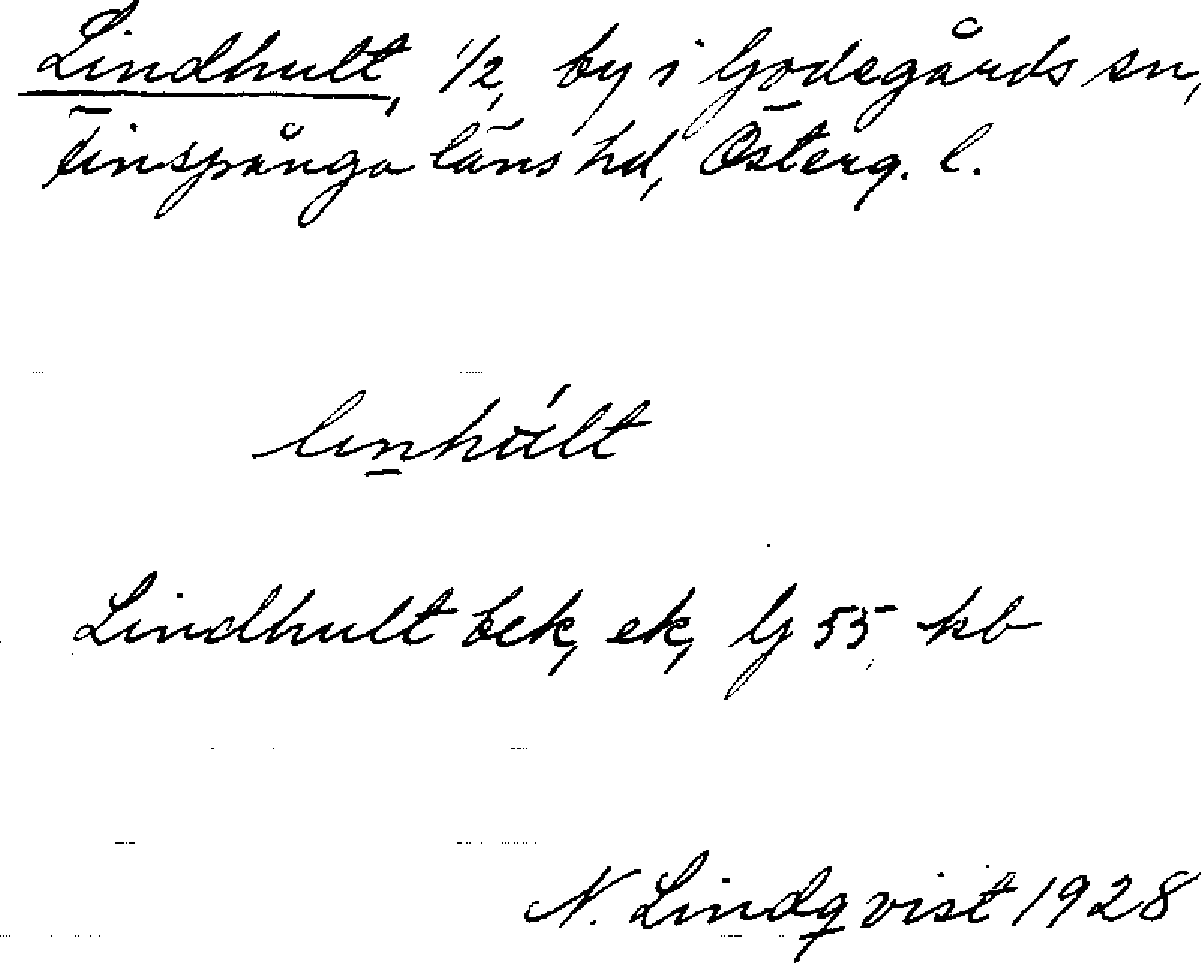 Lindhult, 1/2, by i Godegårds sn,
Finspånga läns hd, Österg. l.
linhult
Lindhult bek, ek, G 55 kb
N. Lindqvist 1928